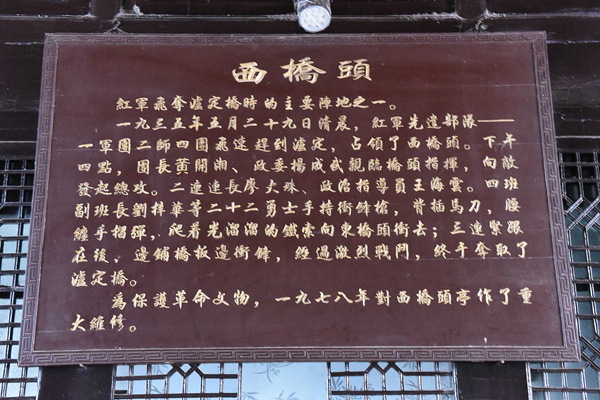 西橋頭
紅軍飛奪瀘定橋時的主要陣地之一。
一九三五年五月二十九日清晨，紅軍先遣部隊——
一軍團二師四團飛速趕到瀘定，占領了西橋頭。下午
四點，團長黃開湘、政委楊成武親臨橋頭指揮，向敵
發起總攻。二連連長廖大珠、政治指導員王海雲。四班
副班長劉梓華等二十二勇士手持衝鋒槍，背插馬刀，腰
纏手榴彈，爬着光溜溜的鐵索向東橋頭衝去；三連緊跟
在後、邊鋪橋板邊衝鋒，經過激烈戰鬥，終于奪取了
瀘定橋。
為保護革命文物，一九七八年對西橋頭亭作了重
大維修。